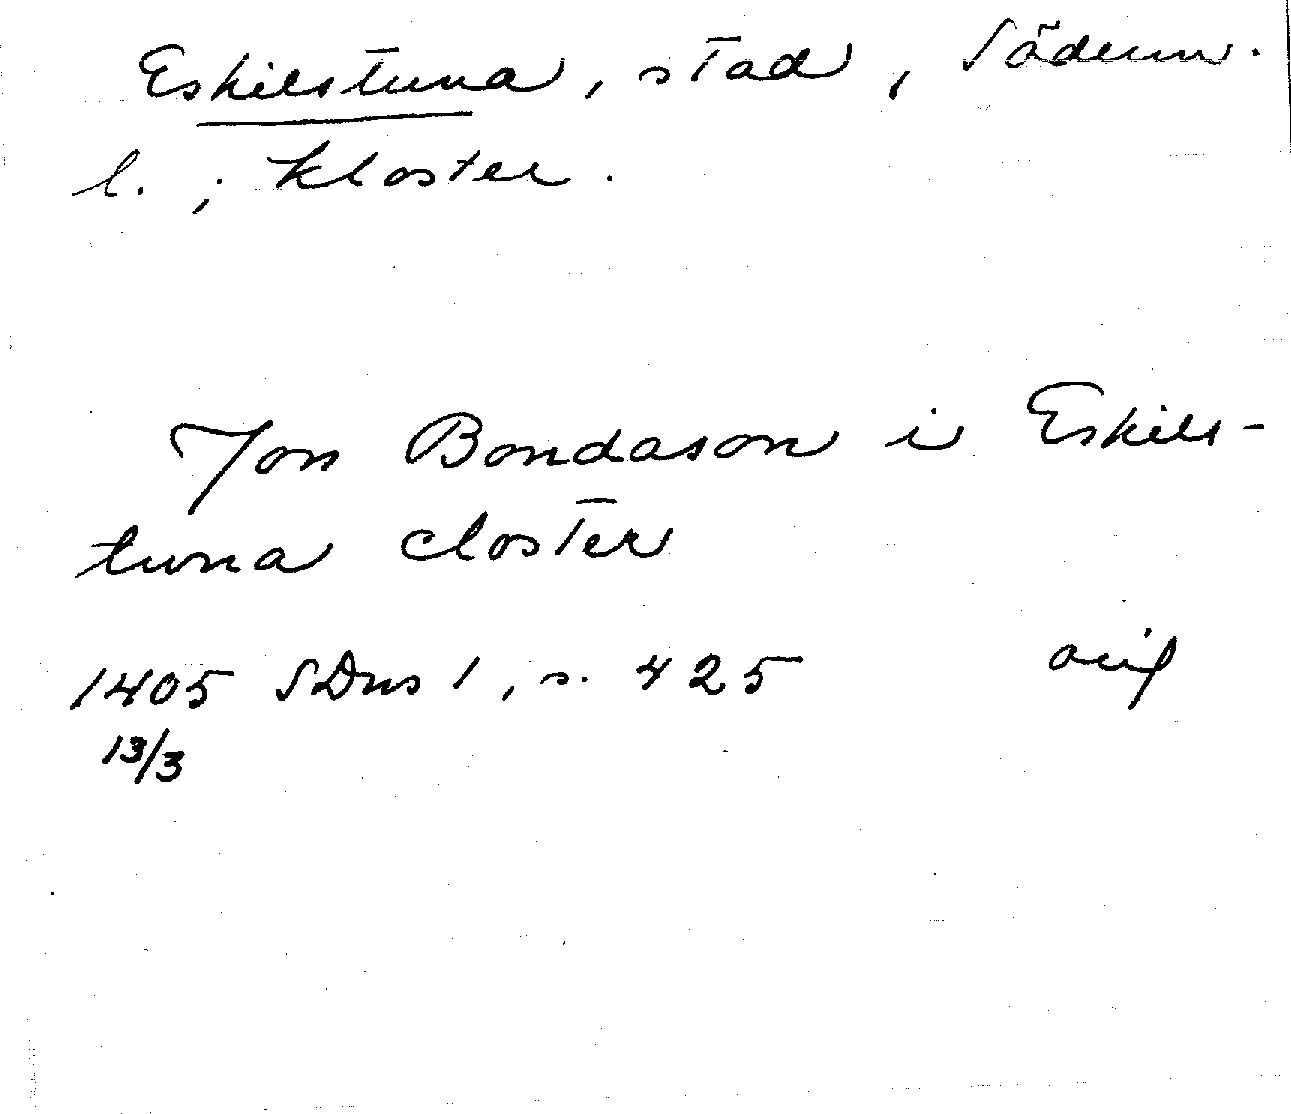 Eskilstuna, stad, Söderm.
l.; kloster.
Jon Bondason i Eskils-
tuna closter
1405 SDns 1, s. 425
13/3